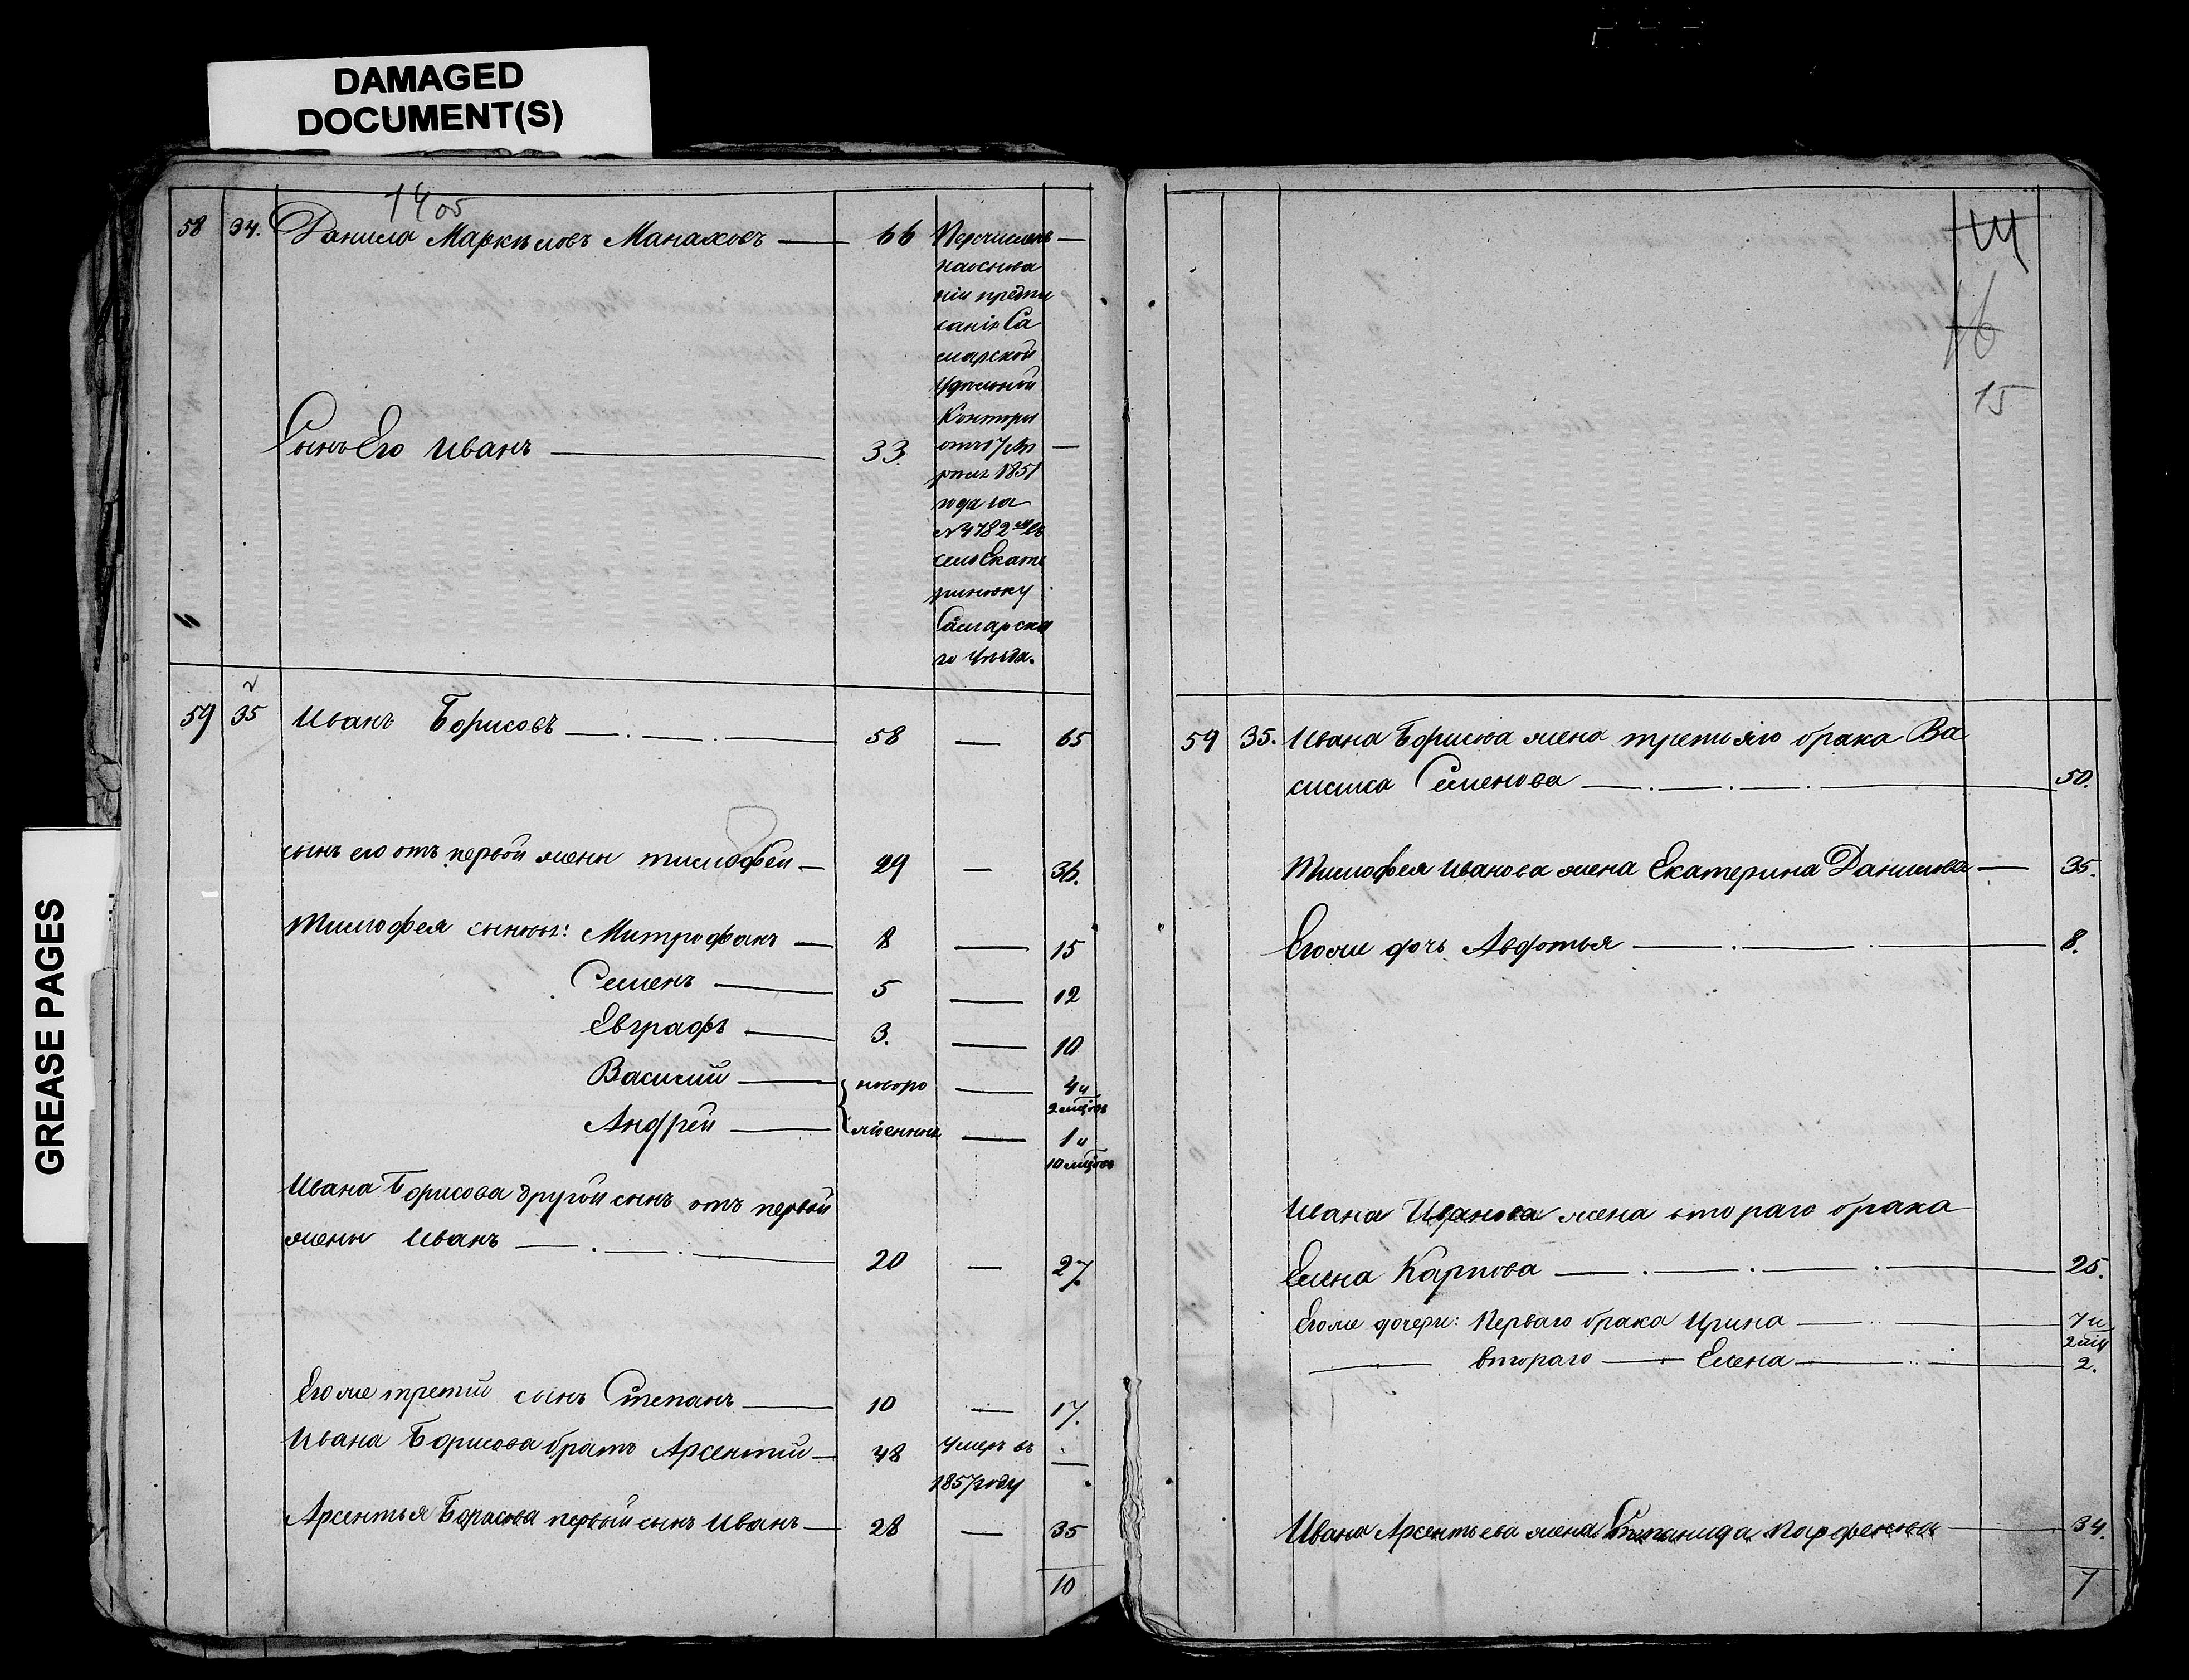 DAMAGED
DOCUMENT(S)
GREASE PAGES
1405
58 34. Данила Маркѣловъ Манаховъ — 66 Перечисленъ —
наоснова
нiи предпи
санiя Са
марской
Удѣльной
Конторы
Сынъ Его Иванъ — 33. отъ 17 —
1851
года за
№ 4782 мъ въ
село Екате
риновку
Самарска
го Уѣзда.
59 35 Иванъ Борисовъ — 58 — 65
сынъ его отъ первой жены Тимофей — 29 — 36.
Тимофея сыновья: Митрофанъ — 8 — 15
Семенъ — 5 — 12
Евграфъ — 3. — 10
Василий — новоро — 4 и
2 мцовъ
Андрей — жденные — 1 и
10 мцовъ
Ивана Борисова другой сынъ отъ первой
жены Иванъ — 20 — 27.
Егоже третий сынъ Степанъ — 10 — 17.
Ивана Борисова братъ Арсентий — 48 Умеръ въ —
1857 году
Арсентья Борисова первый сынъ Иванъ — 28 — 35
10
14
16
15
59 35. Ивана Борисова жена третьяго брака Ва
силиса Семенова — 50.
Тимофея Иванова жена Екатерина Данилова — 35.
Егоже дочь Авдотья — 8.
Ивана Иванова жена втораго брака
Елена Карпова — 25.
Егоже дочери: Перваго брака Ирина — 7 и
2 мцъ
— втораго — Елена — 2.
Ивана Арсентьева жена Степанида Парфенова — 34.
7